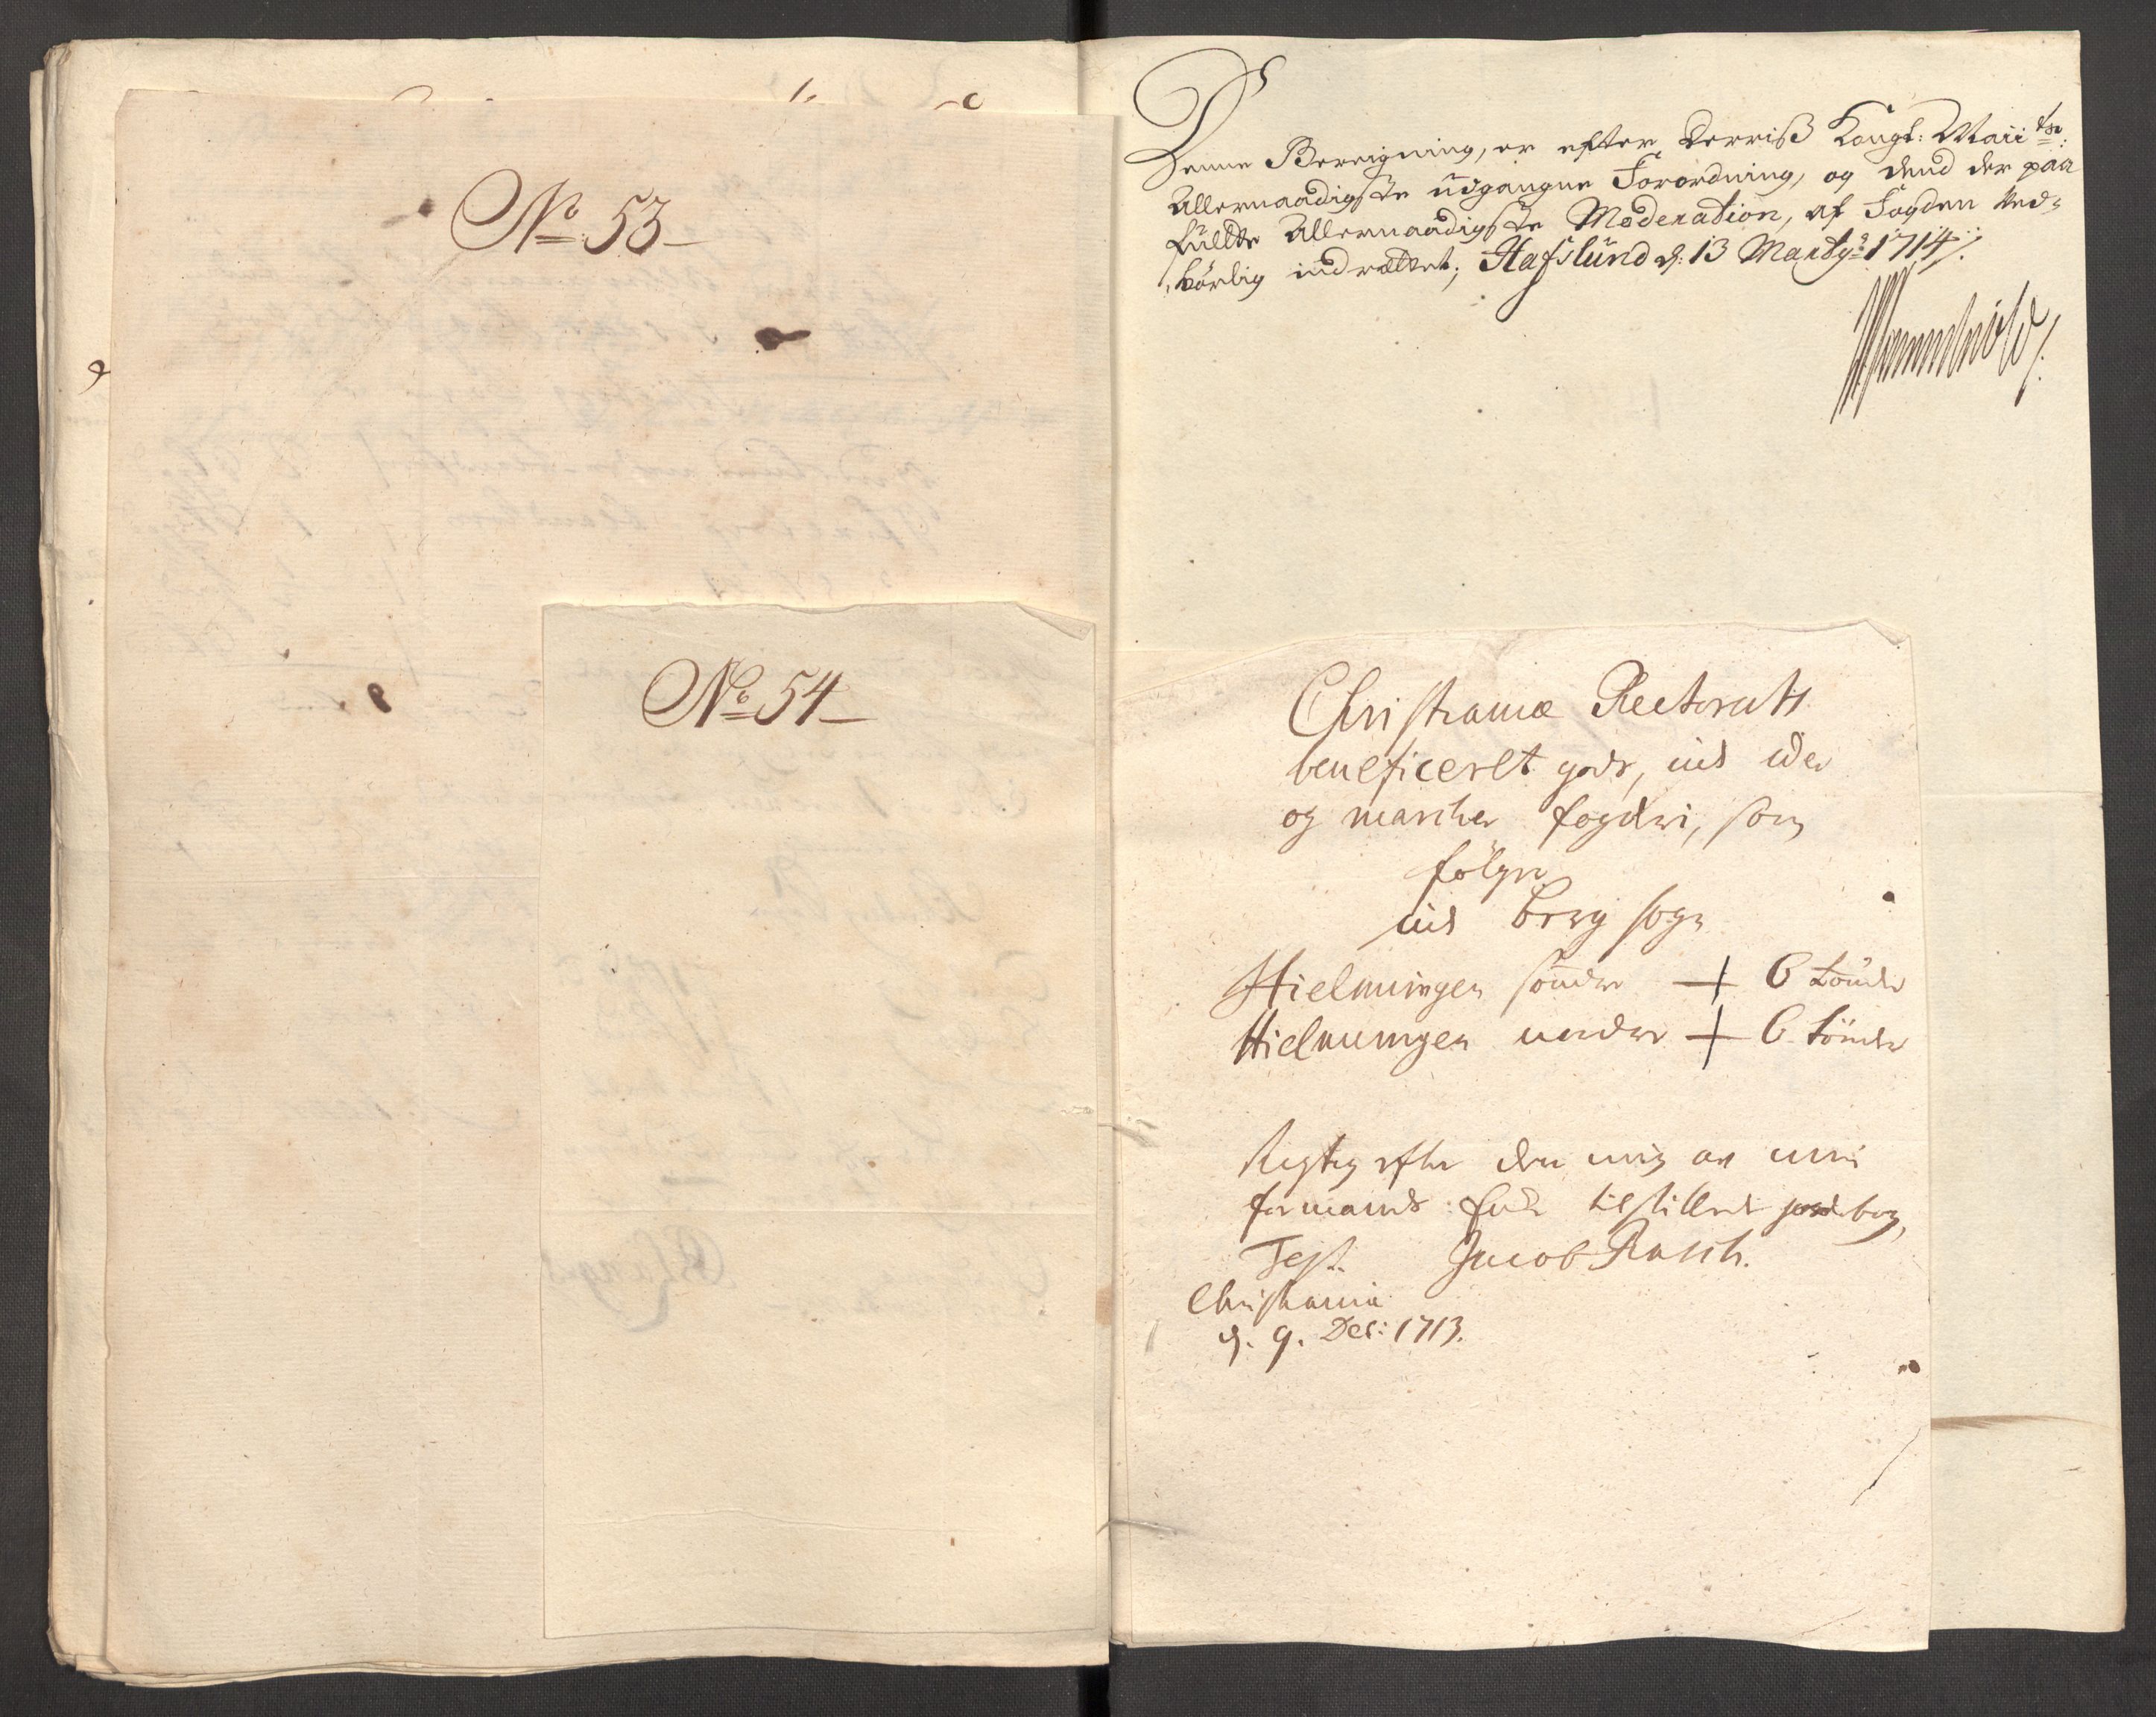 No 53
No 54
Denne Beregning, er efter Derriß Kongl: Maiits:
Allernaadigste udgangne Forordning, og dend der paa
fuldte Allernaadigste Moderation, af Fogden Ved-
börlig indrettet; Hafslund d: 13 Marty 1714
Christianiæ Rectorats
beneficeret gods, udi Ide
og marcher fogderi, som
fölger
udi Berg sogn
Hielmungen söndre + 6 tönder
Hielmungen nordre + 6 tönder
Rigtig efter den mig af min
formands tilstillede jordebog,
Test. Jacob Rasch.
Christiania
d. 9. Dec: 1713.